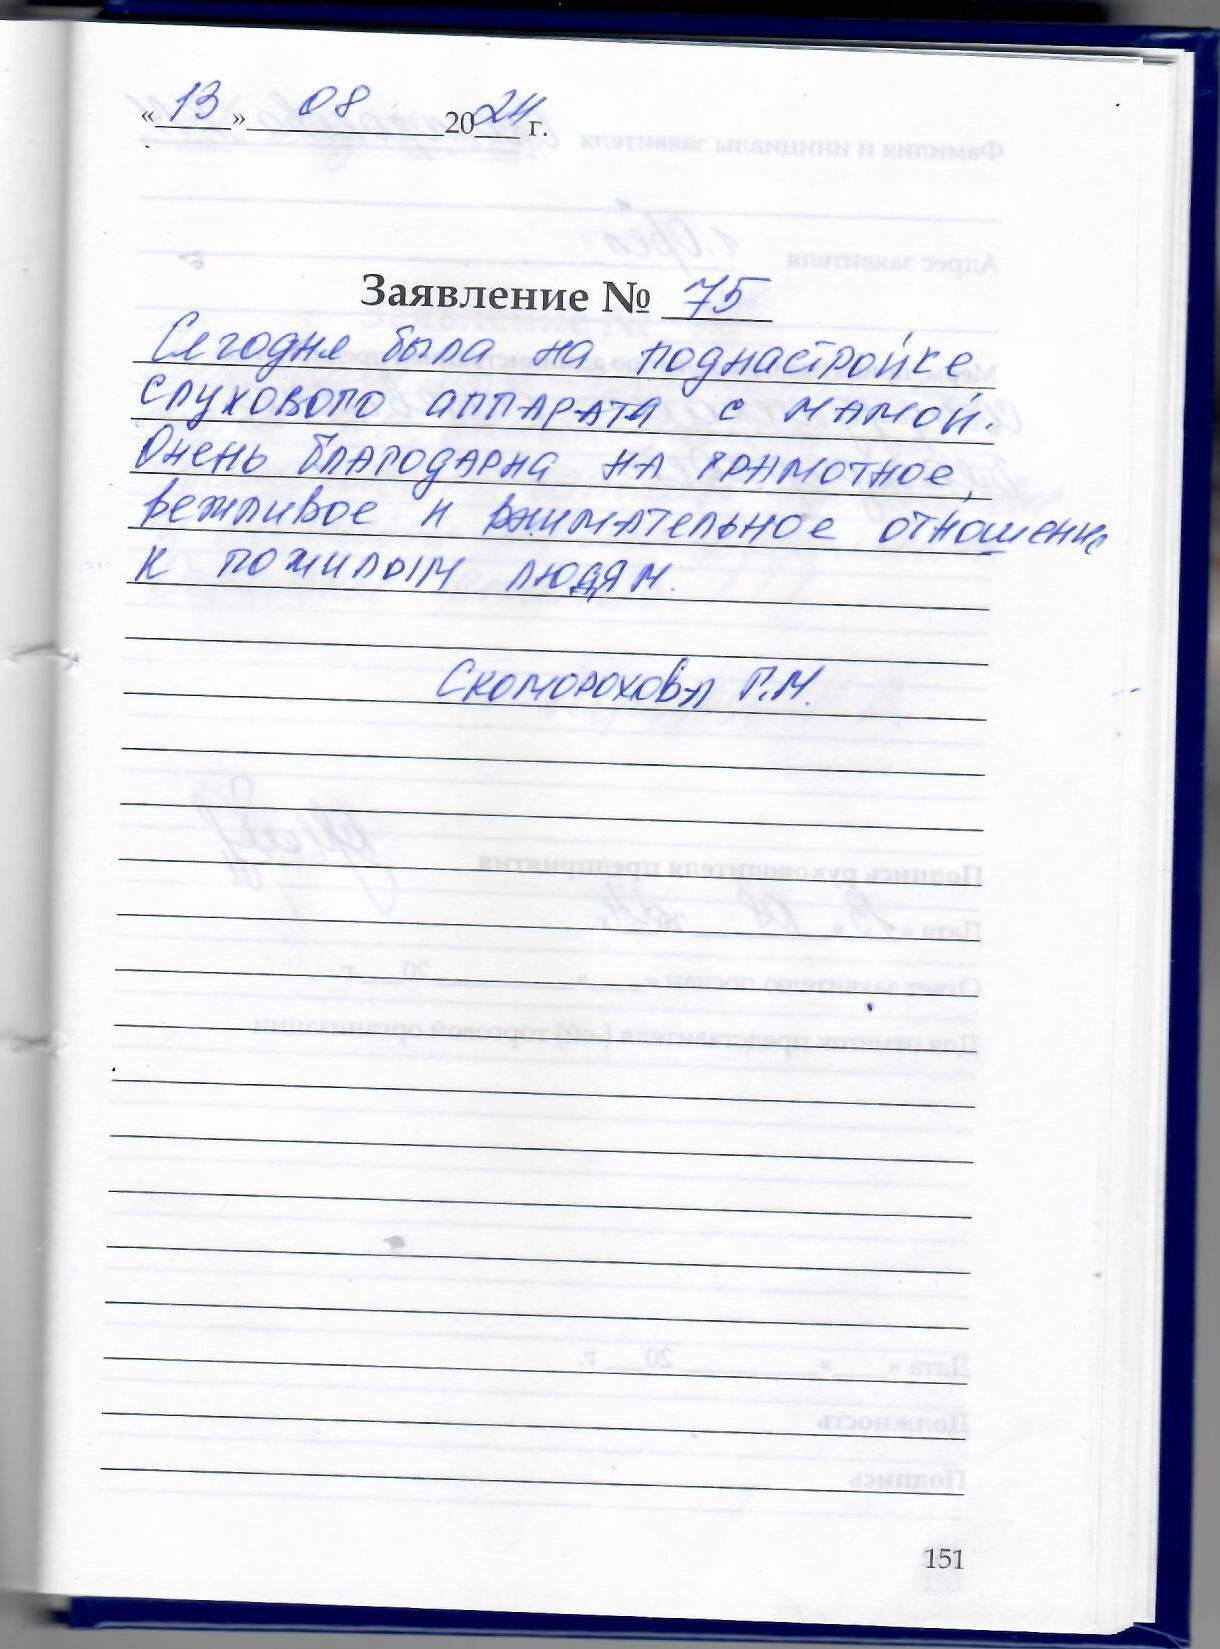 «13» 08 2024 г.
Заявление № 75
Сегодня была на поднастройке
слухового аппарата с мамой.
Очень благодарна на грамотное,
вежливое и внимательное отношение
к пожилым людям.
Скоморохова Г.М.
151